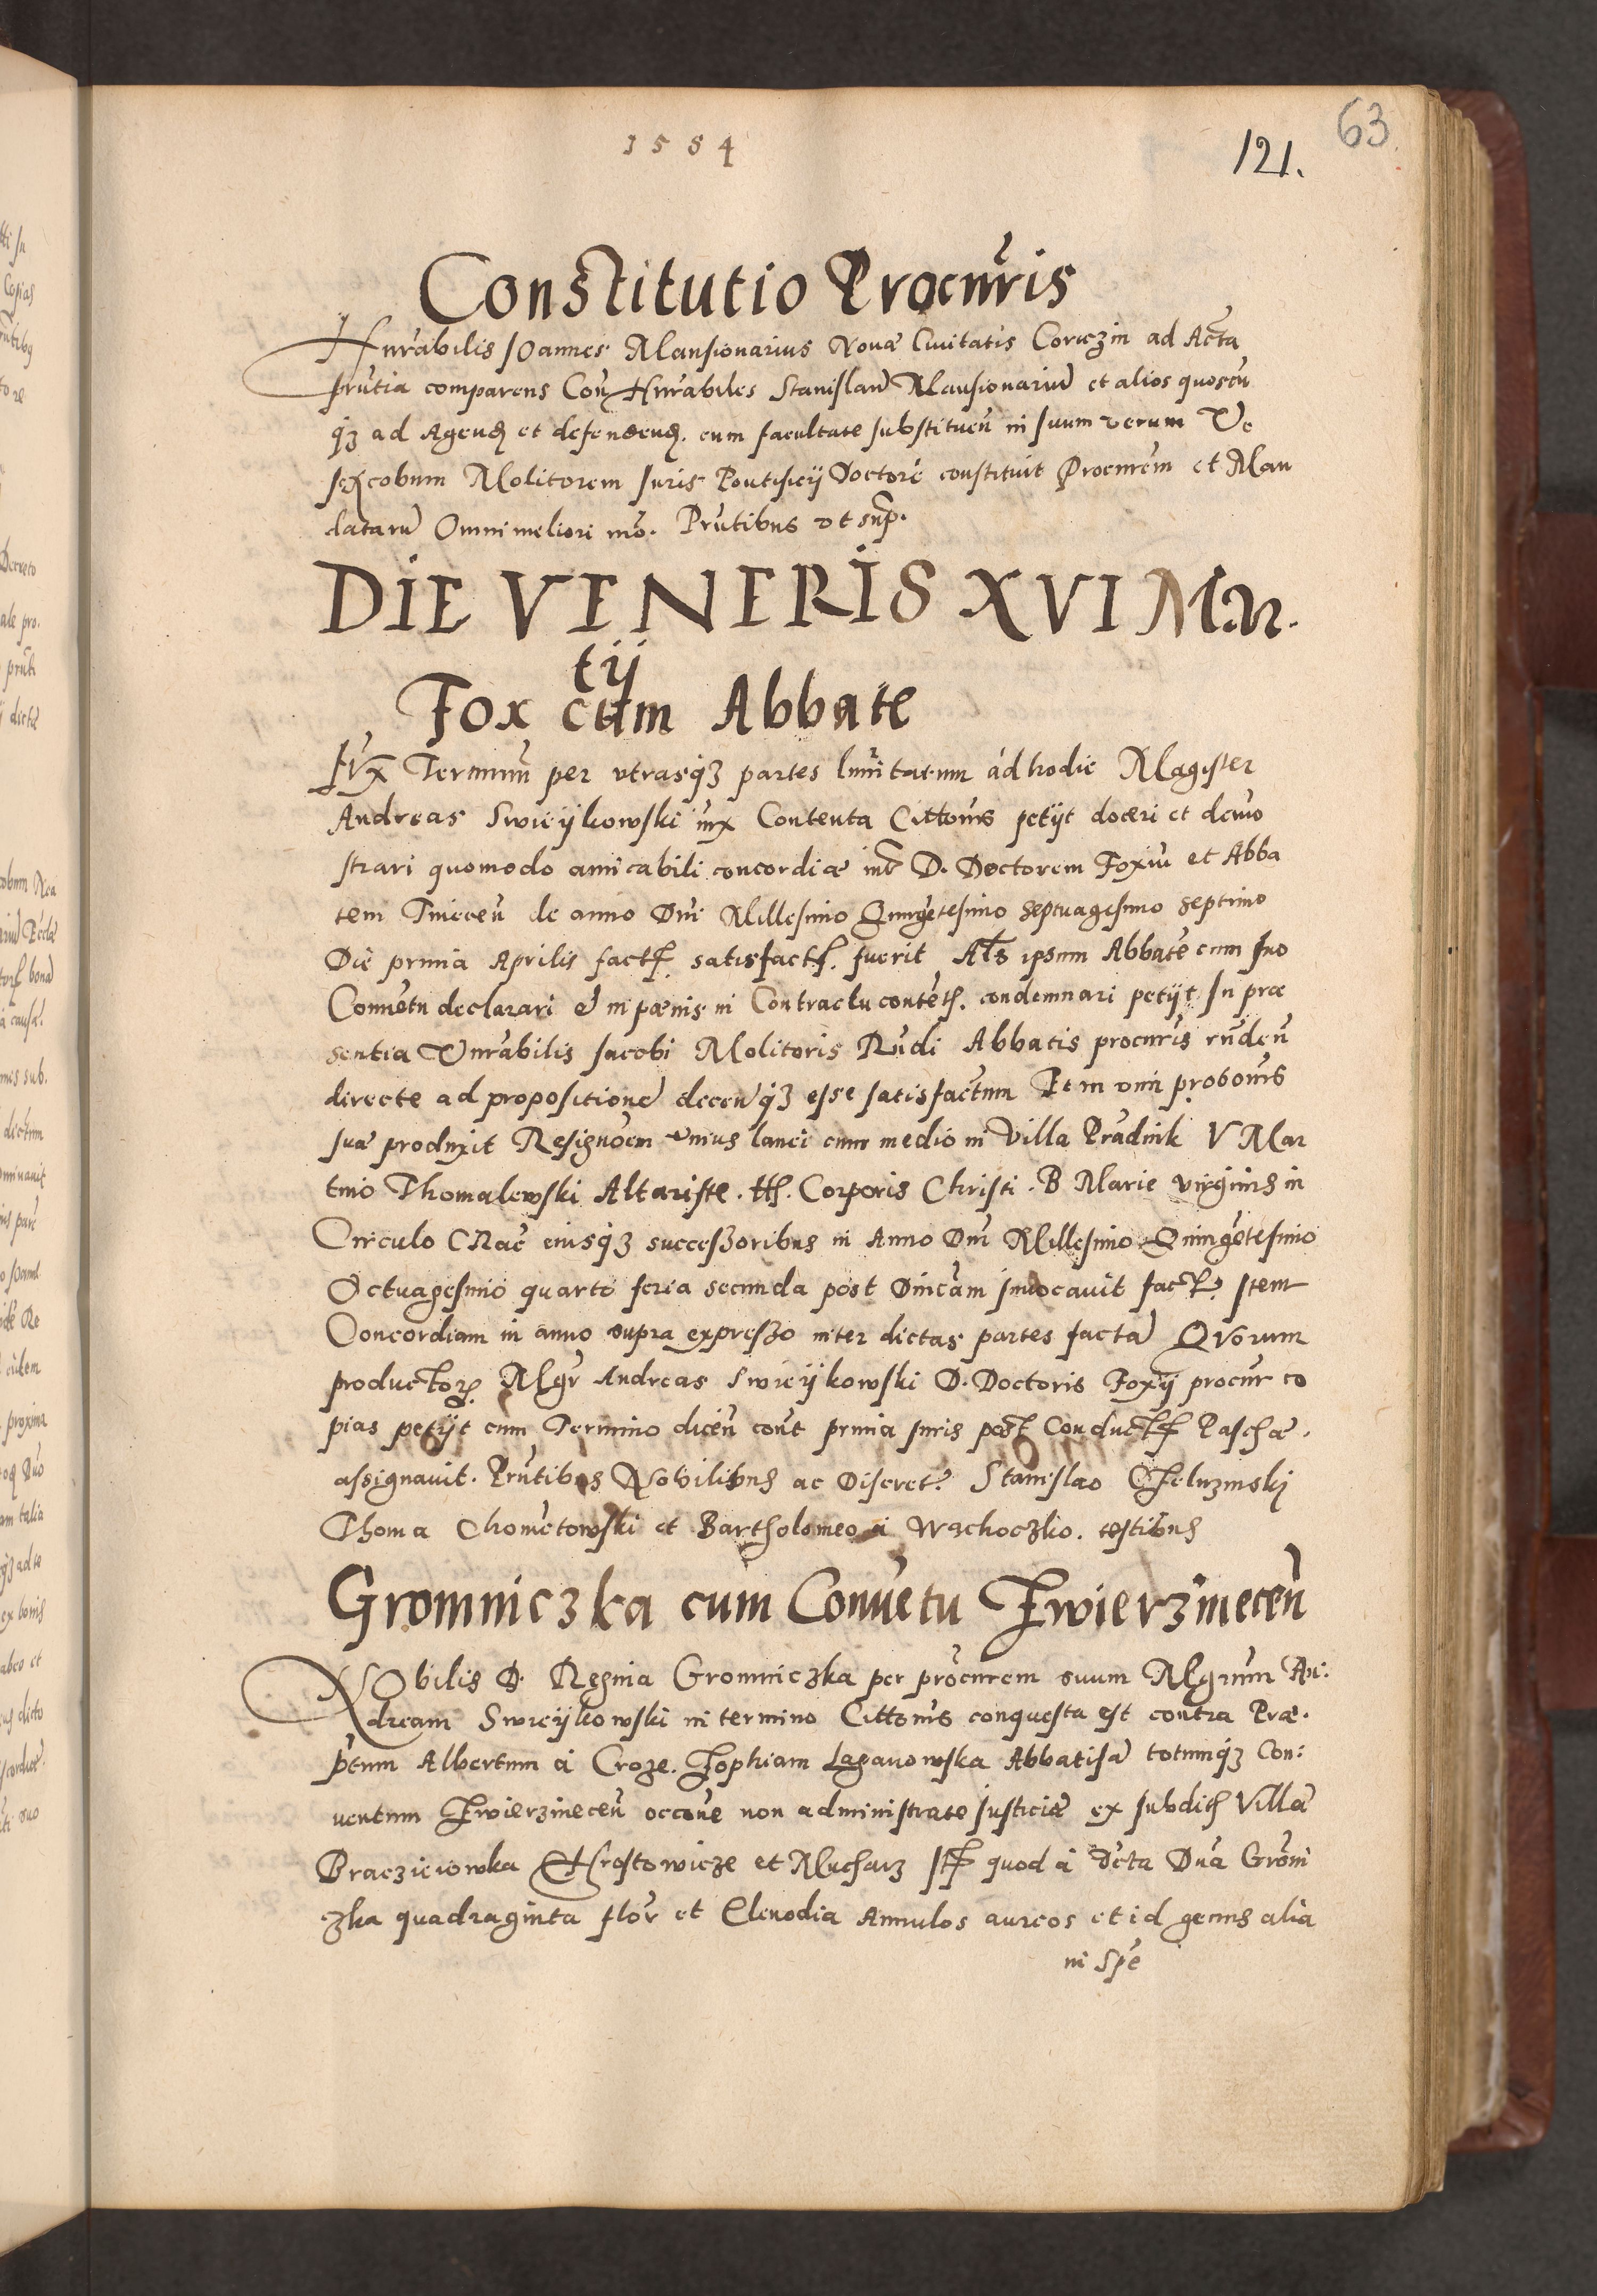 1584
121.
63
Constitutio Procuris
Hnrabilis Joannes Mansionarius Novæ Civitatis Coriczin ad Acta
prntia comparens Con Hnrabiles Stanislaū Mansionariū et alios quoscū
q3 ad Agend et defendend. cum facultate substituen̄ in suum verum Ve
Jacobum Molitorem Juris Pontificij Doctorē constituit Procurēm et Man
datarū Omni meliori mō. Prntibus ut supr.
DIE VENERIS XVI Mar.
tij
Fox cum Abbate
Jux Terminū per utrasq3 partes limitatum ad hodie Magister
Andreas Swieijkowski iux Contenta Cittonis petijt doceri et demō
strari quomodo amicabili concordiæ intr D. Doctorem Foxiū et Abba
tem Tinecen̄ de anno Dni Millesimo Quingētesimo septuagesimo septimo
Die prima Aprilis fact. satisfact. fuerit Als ipsum Abbatē cum suo
Conuētu declarari et in pænis in Contractu contēt. condemnari petijt In præ
sentia Vnrabilis Jacobi Molitoris Rndi Abbatis procuris rnden̄
directe ad propositionē decen q3 esse satisfactum Et in vim probonis
suæ produxit Resignōem unius lanei cum medio in Villa Prādnik V Mar
tino Thomalewski Altaristæ. ttl. Corporis Christi. B Marie virginis in
Circulo Crac eiusq3 successoribus in Anno Dni Millesimo Quingētesimo
Octuagesimo quarto feria secunda post Dnicam inuocauit fact. Item
Concordiam in anno supra expresso inter dictas partes factā Quorum
product. Mgr Andreas Swieijkowski D. Doctoris Foxij procur co
pias petijt cum Termino dicen̄ cont prima Juris post Conduct. Paschæ.
assignauit. Prntibus Nobilibus ac Discret. Stanislao Cheluzinskj
Thoma Chometowski et Bartholomeo a Wachoczko. testibus
Gromniczka cum Conuētu Zwierzinecen̄
NObilis D. Regina Gromniczka per procurem suum Mgrum An:
dream Swieijkowski in termino Cittonis conquesta est contra Præ.
ptum Albertum a Croze. Zophiam Laganowska Abbatisā totumq3 Con:
uentum Zwierzinecen̄ occōne non administratæ Justiciæ ex subdit Villæ
Braczieiowka Chrostowicze et Mucharz quod a dcta Dna Gromi
czka quadraginta flor et Clenodia Annulos aureos et id genus alia
in Spe